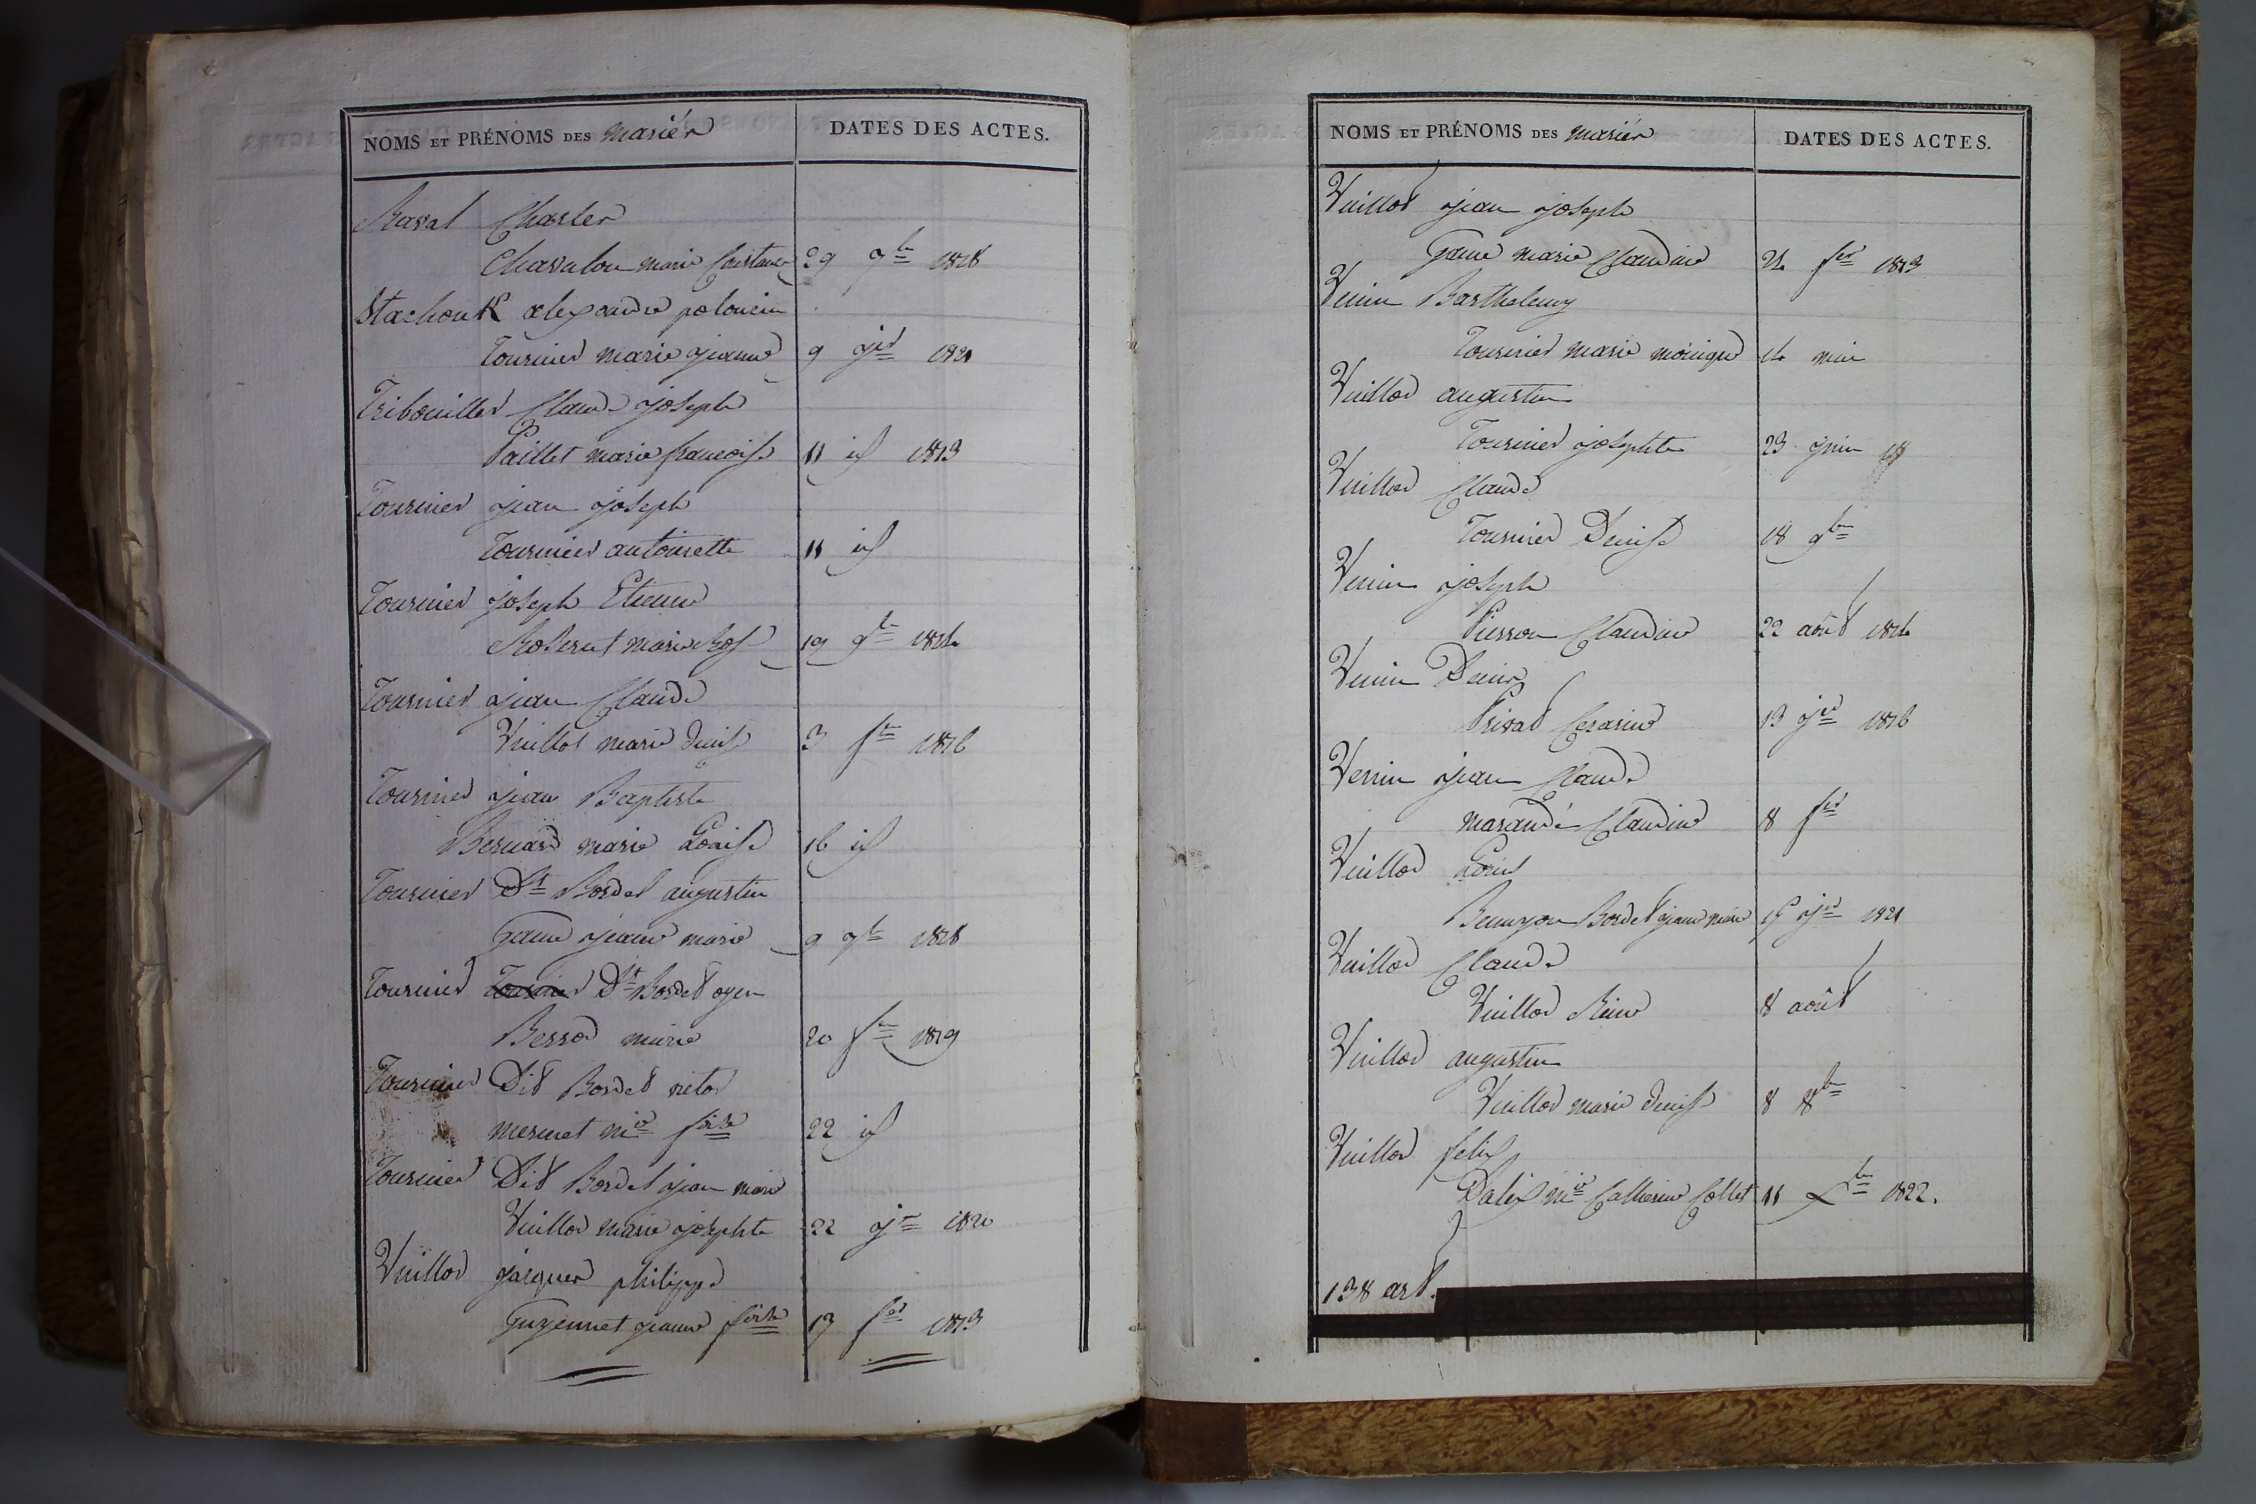 NOMS ET PRÉNOMS DES mariés
DATES DES ACTES.
Raval Charles
Chavalon marie Constance 29 9bre 1818
Stachouk alexandre polonais
Tournier marie jeanne 9 jer 1821
Tribouillet Claude joseph
Paillet marie françoise 11 id 1813
Tournier jean joseph
Tournier antoinette 11 id
Tournier joseph Etienne
marie Rose 19 9bre 1814
Tournier jean Claude
Vuillot marie denise 3 fer 1816
Tournier jean Baptiste
Bernard marie Louise 16 id
Tournier Dt Bordet augustin
jeanne marie 9 1818
Tournier Dt Bordet
Bessod marie 20 fer 1819
Tournier Dit Bordet
mermet mie 22 id
Tournier Dit Bordet jean marie
Vuillod marie josephte 22 jer 1820
Vuillod jacques philippe
Guyennet jeanne 13 fer 1813
NOMS ET PRÉNOMS DES mariés
DATES DES ACTES.
Vuillot jean joseph
marie Claudine 24 fer 1813
Barthelemy
Tournier marie monique 14 mai
Vuillod augustin
Tournier josephte 23 juin id
Vuillod Claude
Tournier Denise 18 9bre
joseph
Pierson Claudine 22 août 1814
Denis
Privat Cesarine 13 jer 1816
jean Claude
marandé Claudine 8 fer
Vuillod Louis
Bordet jeanne marie 15 jer 1821
Vuillod Claude
Vuillod Reine 8 août
Vuillod augustin
Vuillod marie denise 8 8bre
Vuillod felix
Dalex mie Catherine Collet 11 Xbre 1822.
138 art.